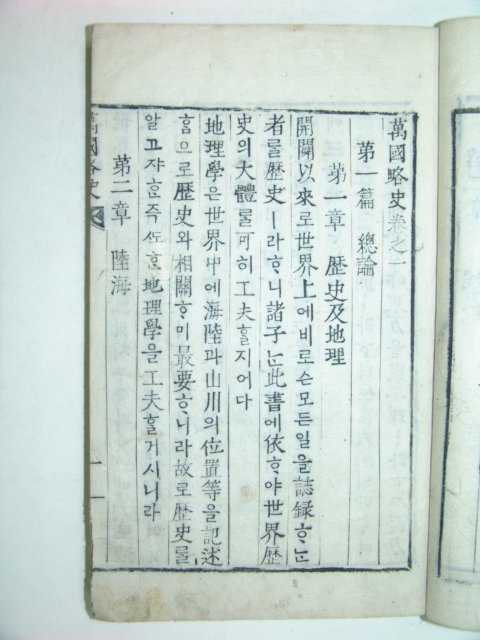 萬國略史卷之一
第一篇 總論
第一章 歷史及地理
開闢以來로世界上에비로슨모든일을誌録ᄒᆞᄂᆞᆫ
者ᄅᆞᆯ歷史ㅣ라ᄒᆞᄂᆞ니諸子ᄂᆞᆫ此書에依ᄒᆞ야世界歷
史의大體ᄅᆞᆯ可히工夫ᄒᆞᆯ지어다
地理學은世界中에海陸과山川의位置等을記述
ᄒᆞᆷ으로歷史와相關ᄒᆞ미最要ᄒᆞ니라故로歷史ᄅᆞᆯ
알고쟈ᄒᆞᆷ즉ᄯᅩᄒᆞᆫ地理學을工夫ᄒᆞᆯ거시니라
第二章 陸海
萬國略史
一